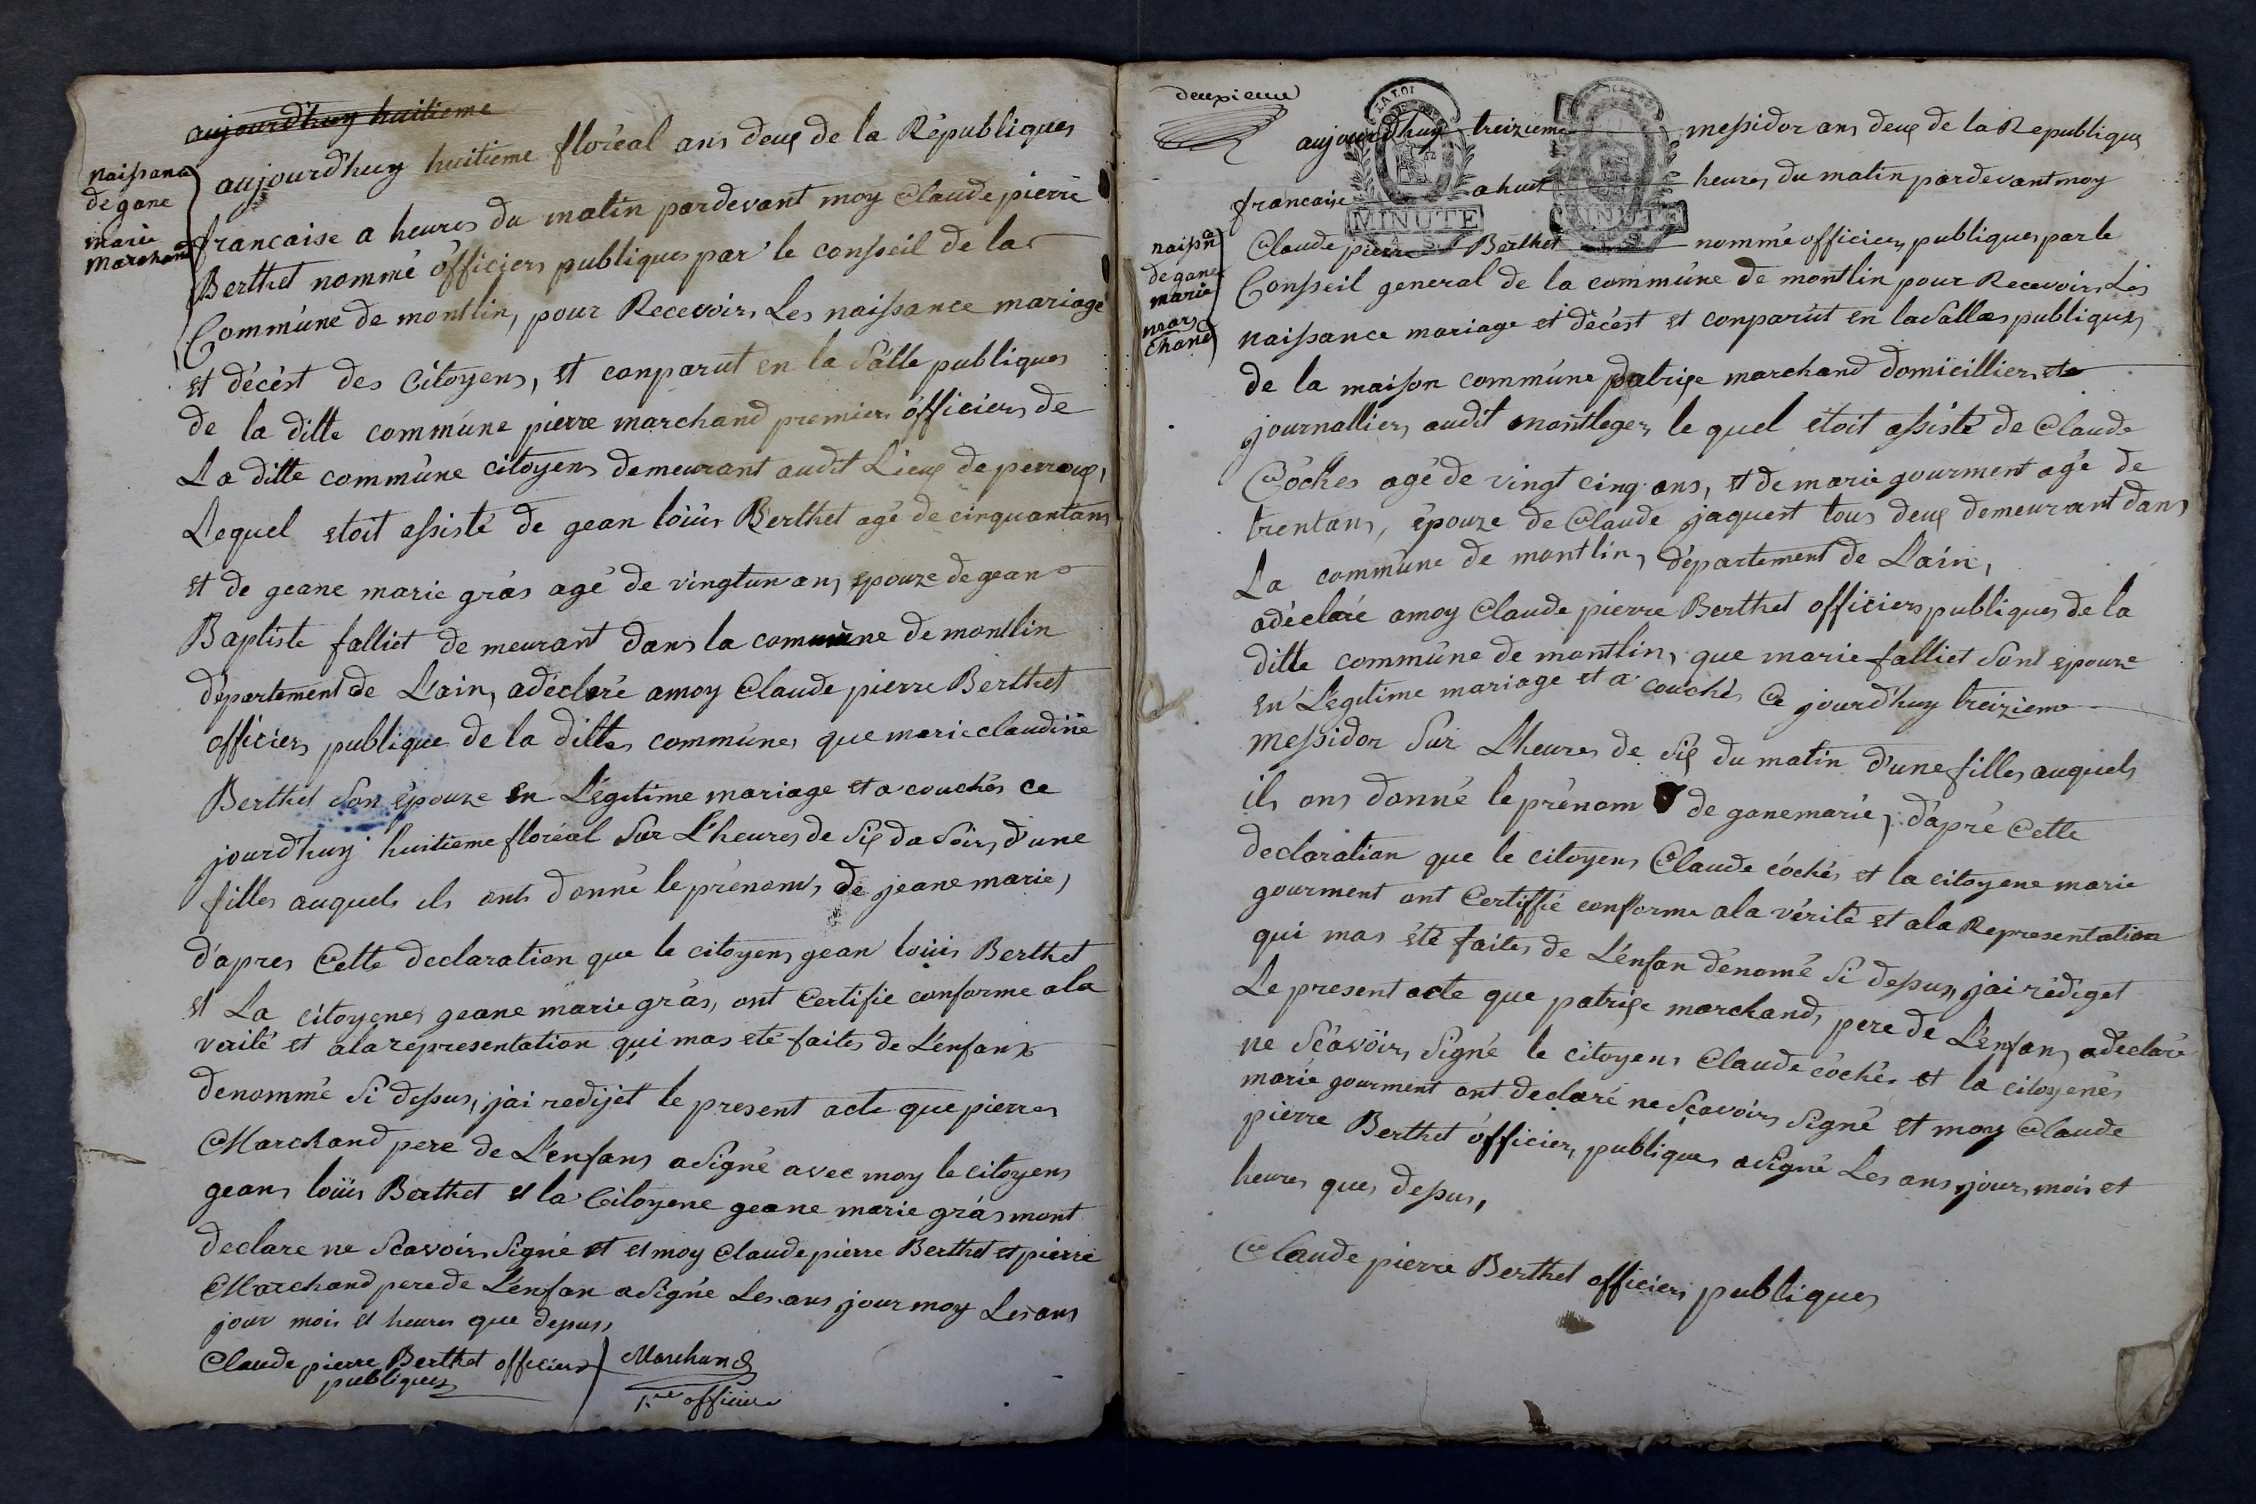 aujourd'huy huitieme
naissance
de gane
marie
marchand
aujourd'huy huitieme floréal ans deux de la Républiques
francaise a heures du matin pardevant moy Claude pierre
Berthet nommé officiers publiques par le consseil de la
Commúne de montlin, pour Recevoirs Les naissance mariage
et décèst des Citoyens, et conparut en la Salle publiques
de la ditte commúne pierre marchand premiers officiers de
La ditte commúne citoyens demeurant audit Lieux de perroux,
Lequel etoit assisté de gean loüis Berthet agé de cinquantans
et de geane marie grás agé de vingtun ans epouze de gean
Baptiste falliet de meurant dans la commúne de montlin
département de L'ain, adécleré amoy Claude pierre Berthet
officiers publique de la dittes commúnes que marie claudine
Berthet son épouze en Légitime mariage et a couchés ce
jourd'huy huitieme floréal Sur L'heures de Six da Soirs d'une
filles auquels ils onts donné le prénoms, de jeane marie,
d'apres Cette declaration que le citoyens gean loüis Berthet
et La citoyenes geane marie grás, ont Certifie conforme ala
verité et ala représentation qui mas eté faites de L'enfans
denommé Si dessus, jai redijét le present acte que pierres
Marchand pere de L'enfans aSigné avec moy le citoyens
geans loüis Berthet et la Citoyene geane marie grás mont
declare ne Scavoirs Signé et et moy Claude pierre Berthet et pierre
Marchand pere de L'énfan aSigné Les ans jour moy Les ans
jour mois et heures que dessus,
Claude pierre Berthet officiers
publiques
Marchand
1.er officier
deuxieme
aujourd'huy treizieme messidor ans deux de la Republiques
francaise a huit heures du matin pardevant moy
naissa
de gane
marie
mar
chand
Claude pierre Berthet nommé officiers publiques par le
Consseil general de la commúne de montlin pour Recevoirs Les
naissance mariage et décést et conparút en la Salles publiques
de la maison commúne patrixe marchand domicilliers et
journalliers audit montleger, le quel etoit assisté de Claude
Cóches agé de vingt cinq ans, et de marie gourment agé de
trentans, épouze de Claude jaquest tous deux demeurant dans
La commúne de montlin, département de L'ain,
adéclaré amoy Claude pierre Berthet officiers publiques de la
ditte commúne de montlin, que marie falliet Sont epouze
en Légitime mariage et a couchés Ce jourd'huy treizieme
messidor Sur L'heures de Six du matin d'une filles auquels
ils ons donné le prénom de gane marie, d'apré Cette
declaration que le citoyens Claude cóchés et la citoyene marie
gourment ont Certiffié conforme ala vérité et ala Representation
qui mas été faites de L'énfan dénomé Si dessus, jai rédiget
Le present acte que patrixe marchand, pere de L'énfans adéclaré
ne Scávoirs Signé le citoyens Claude cóchés et la citoyenes
marie gourment ont declaré ne Scavoirs Signé et moy Claude
pierre Berthet officiers publiques aSigné Les ans jours mois et
heures ques dessus,
Claude pierre Berthet officiers publiques
LA LOI
MINUTE
MINUTE